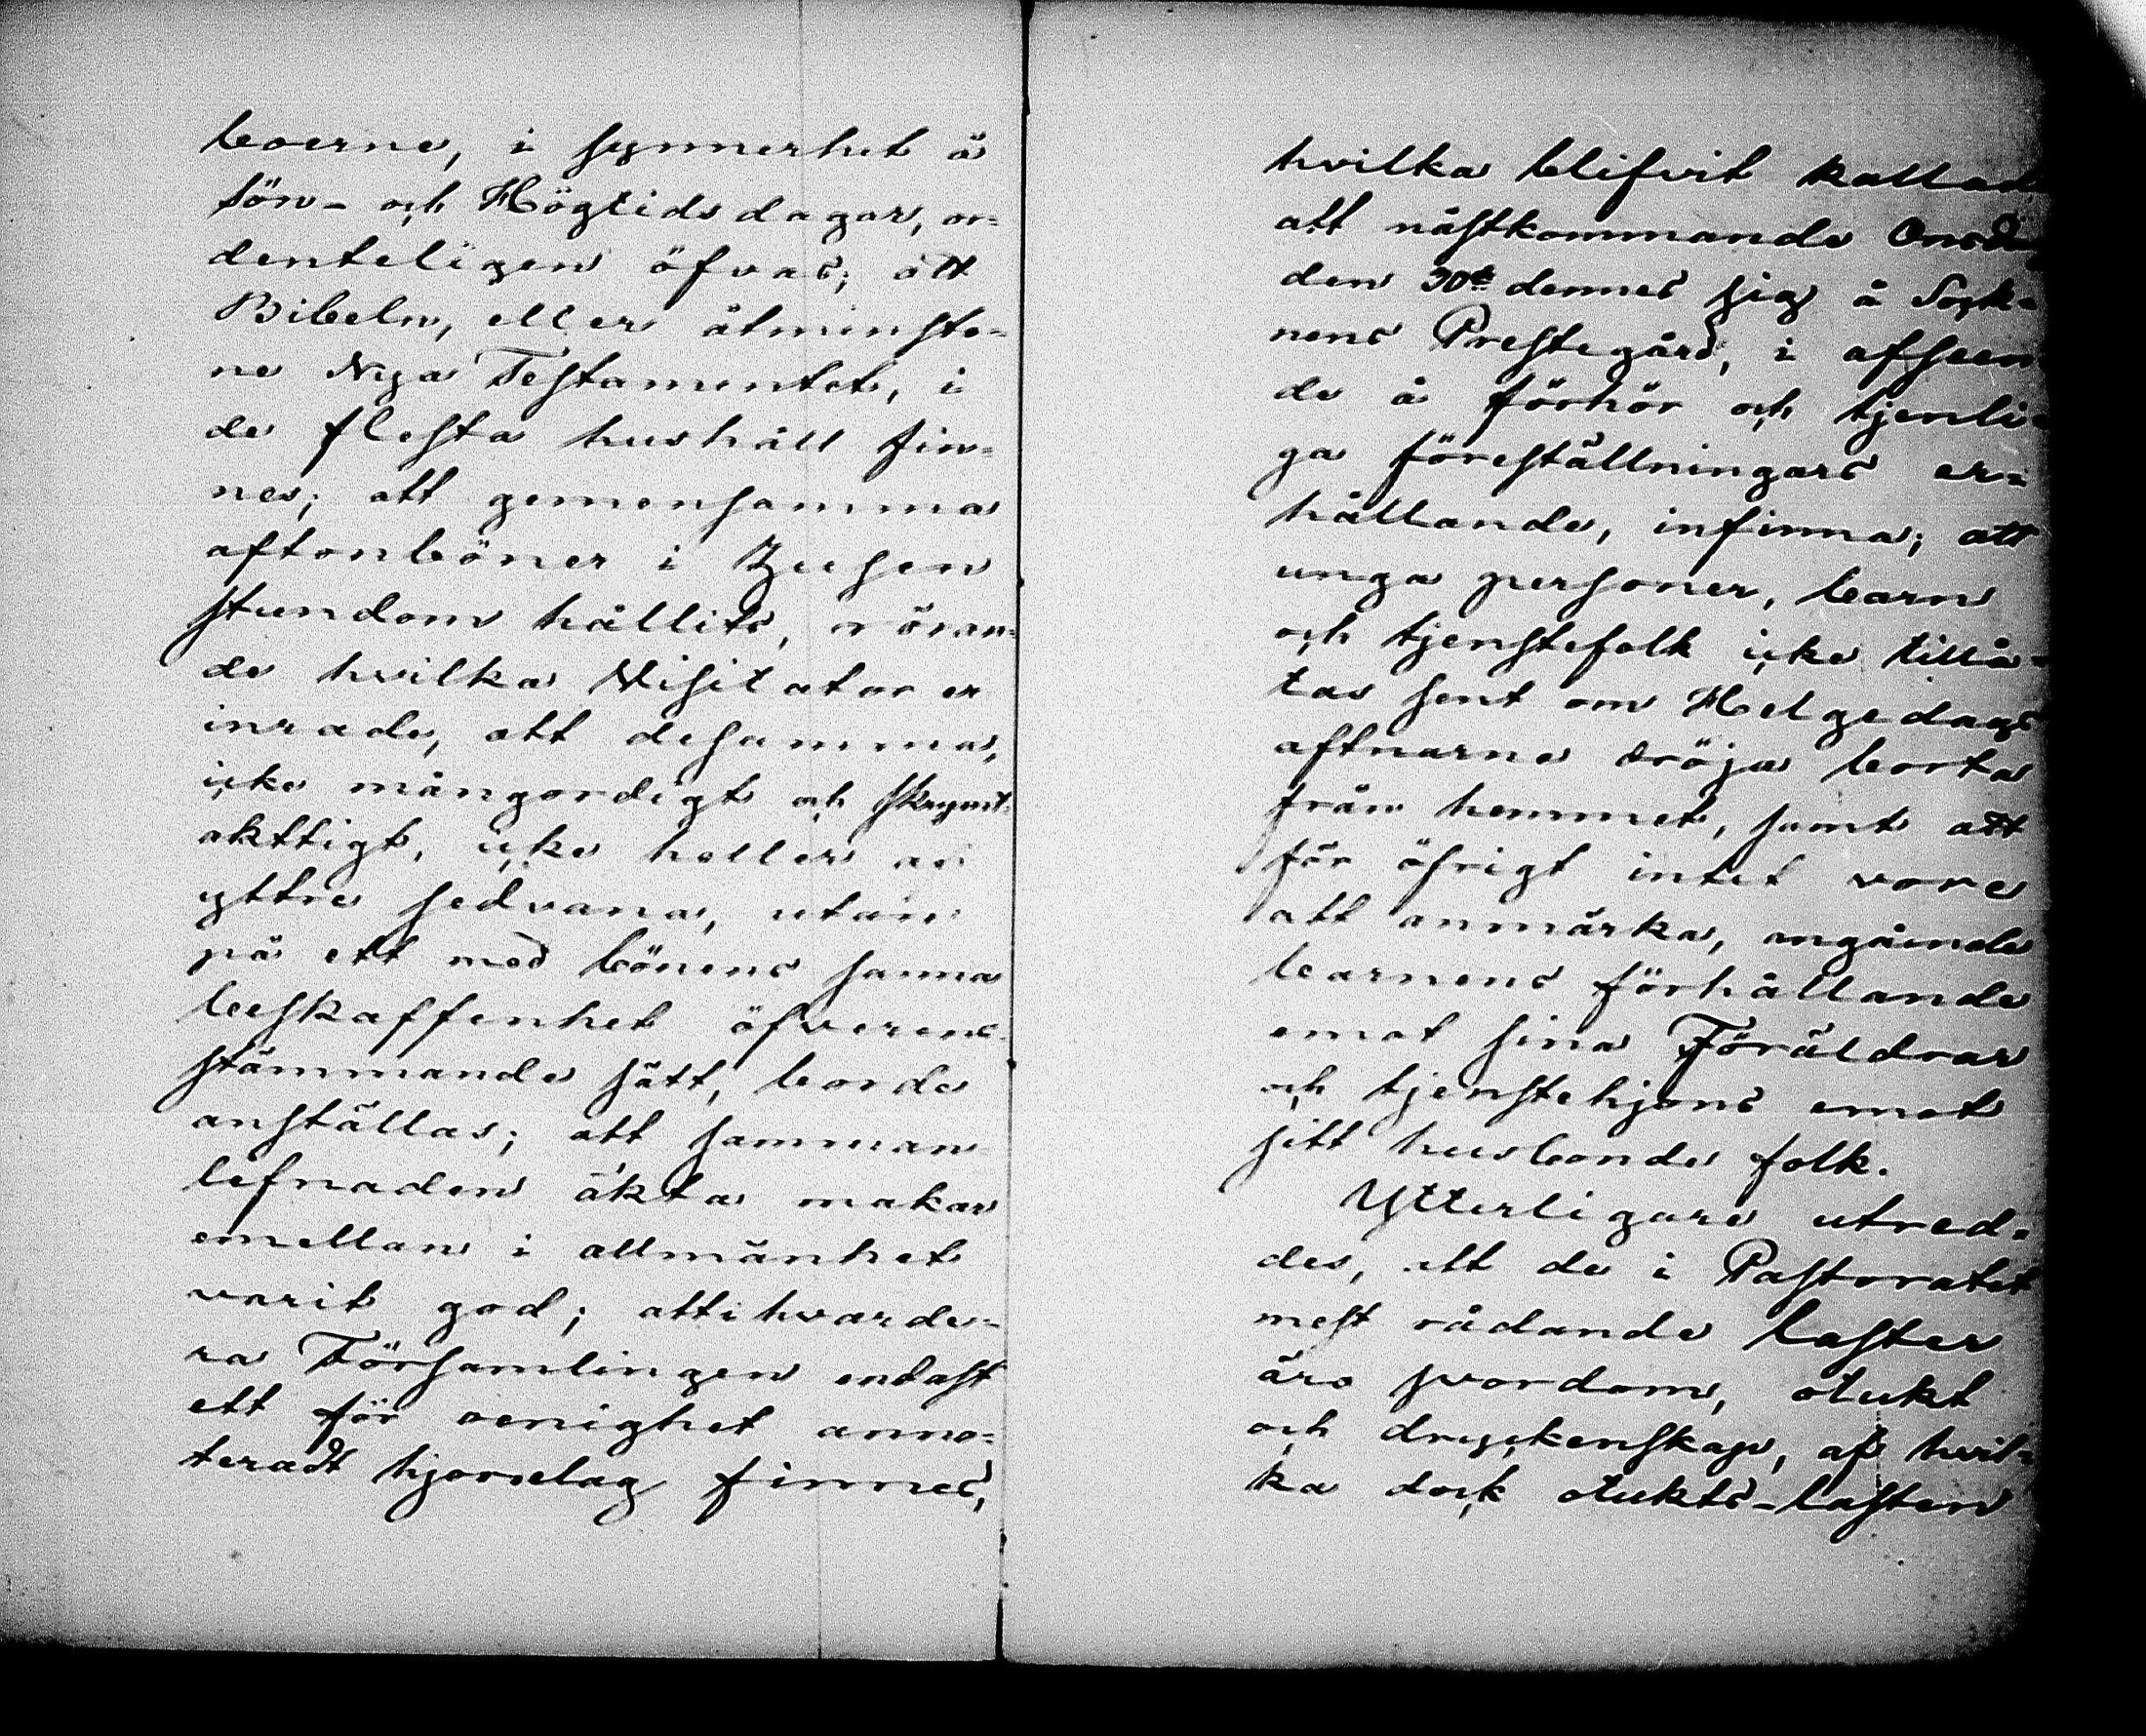 boerne, i synnerhet å
Sön- och Högtidsdagar, or-
denteligen öfvas; att
Bibeln, eller åtminsto-
ne Nya Testamentet, i
de flesta hushåll fin-
nes; att gemensamma
aftonböner i Byesen
stundom hållits, röran-
de hvilka Visitator er
inrade, att desamma,
icke mångordigt och skrymt-
akttigt, icke heller af
yttre sedvana, utan
på ett med bönens sanna
beskaffenhet öfverens-
stämmande sätt, borde
anställas; att samman-
lefnaden äkta makar
emellan i allmänhet
varit god; att i hvarde-
ra Församlingen endast
ett för oenighet anno-
teradt hjonelag finnes,
hvilka blifvit kallade
att nästkommande Onsdag
den 30de dennes sig å Sock-
nens Prestegård, i afseen-
de å förhör och tjenli-
ga föreställningars er-
hållande, infinna; att
unga personer, barn
och tjenstefolk icke tillå-
tas sent om Helgedags
aftnarne dröja borta
från hemmet, samt att
för öfrigt intet vore
att anmärka, angående
barnens förhållande
emot sina Föräldrar
och tjenstehjons emot
sitt husbonde folk.
Ytterligare utred-
des, att de i Pastoratet
mest rådande laster
äro svordom, otukt
och dryckenskap, af hvil-
ka dock otukts-lasten